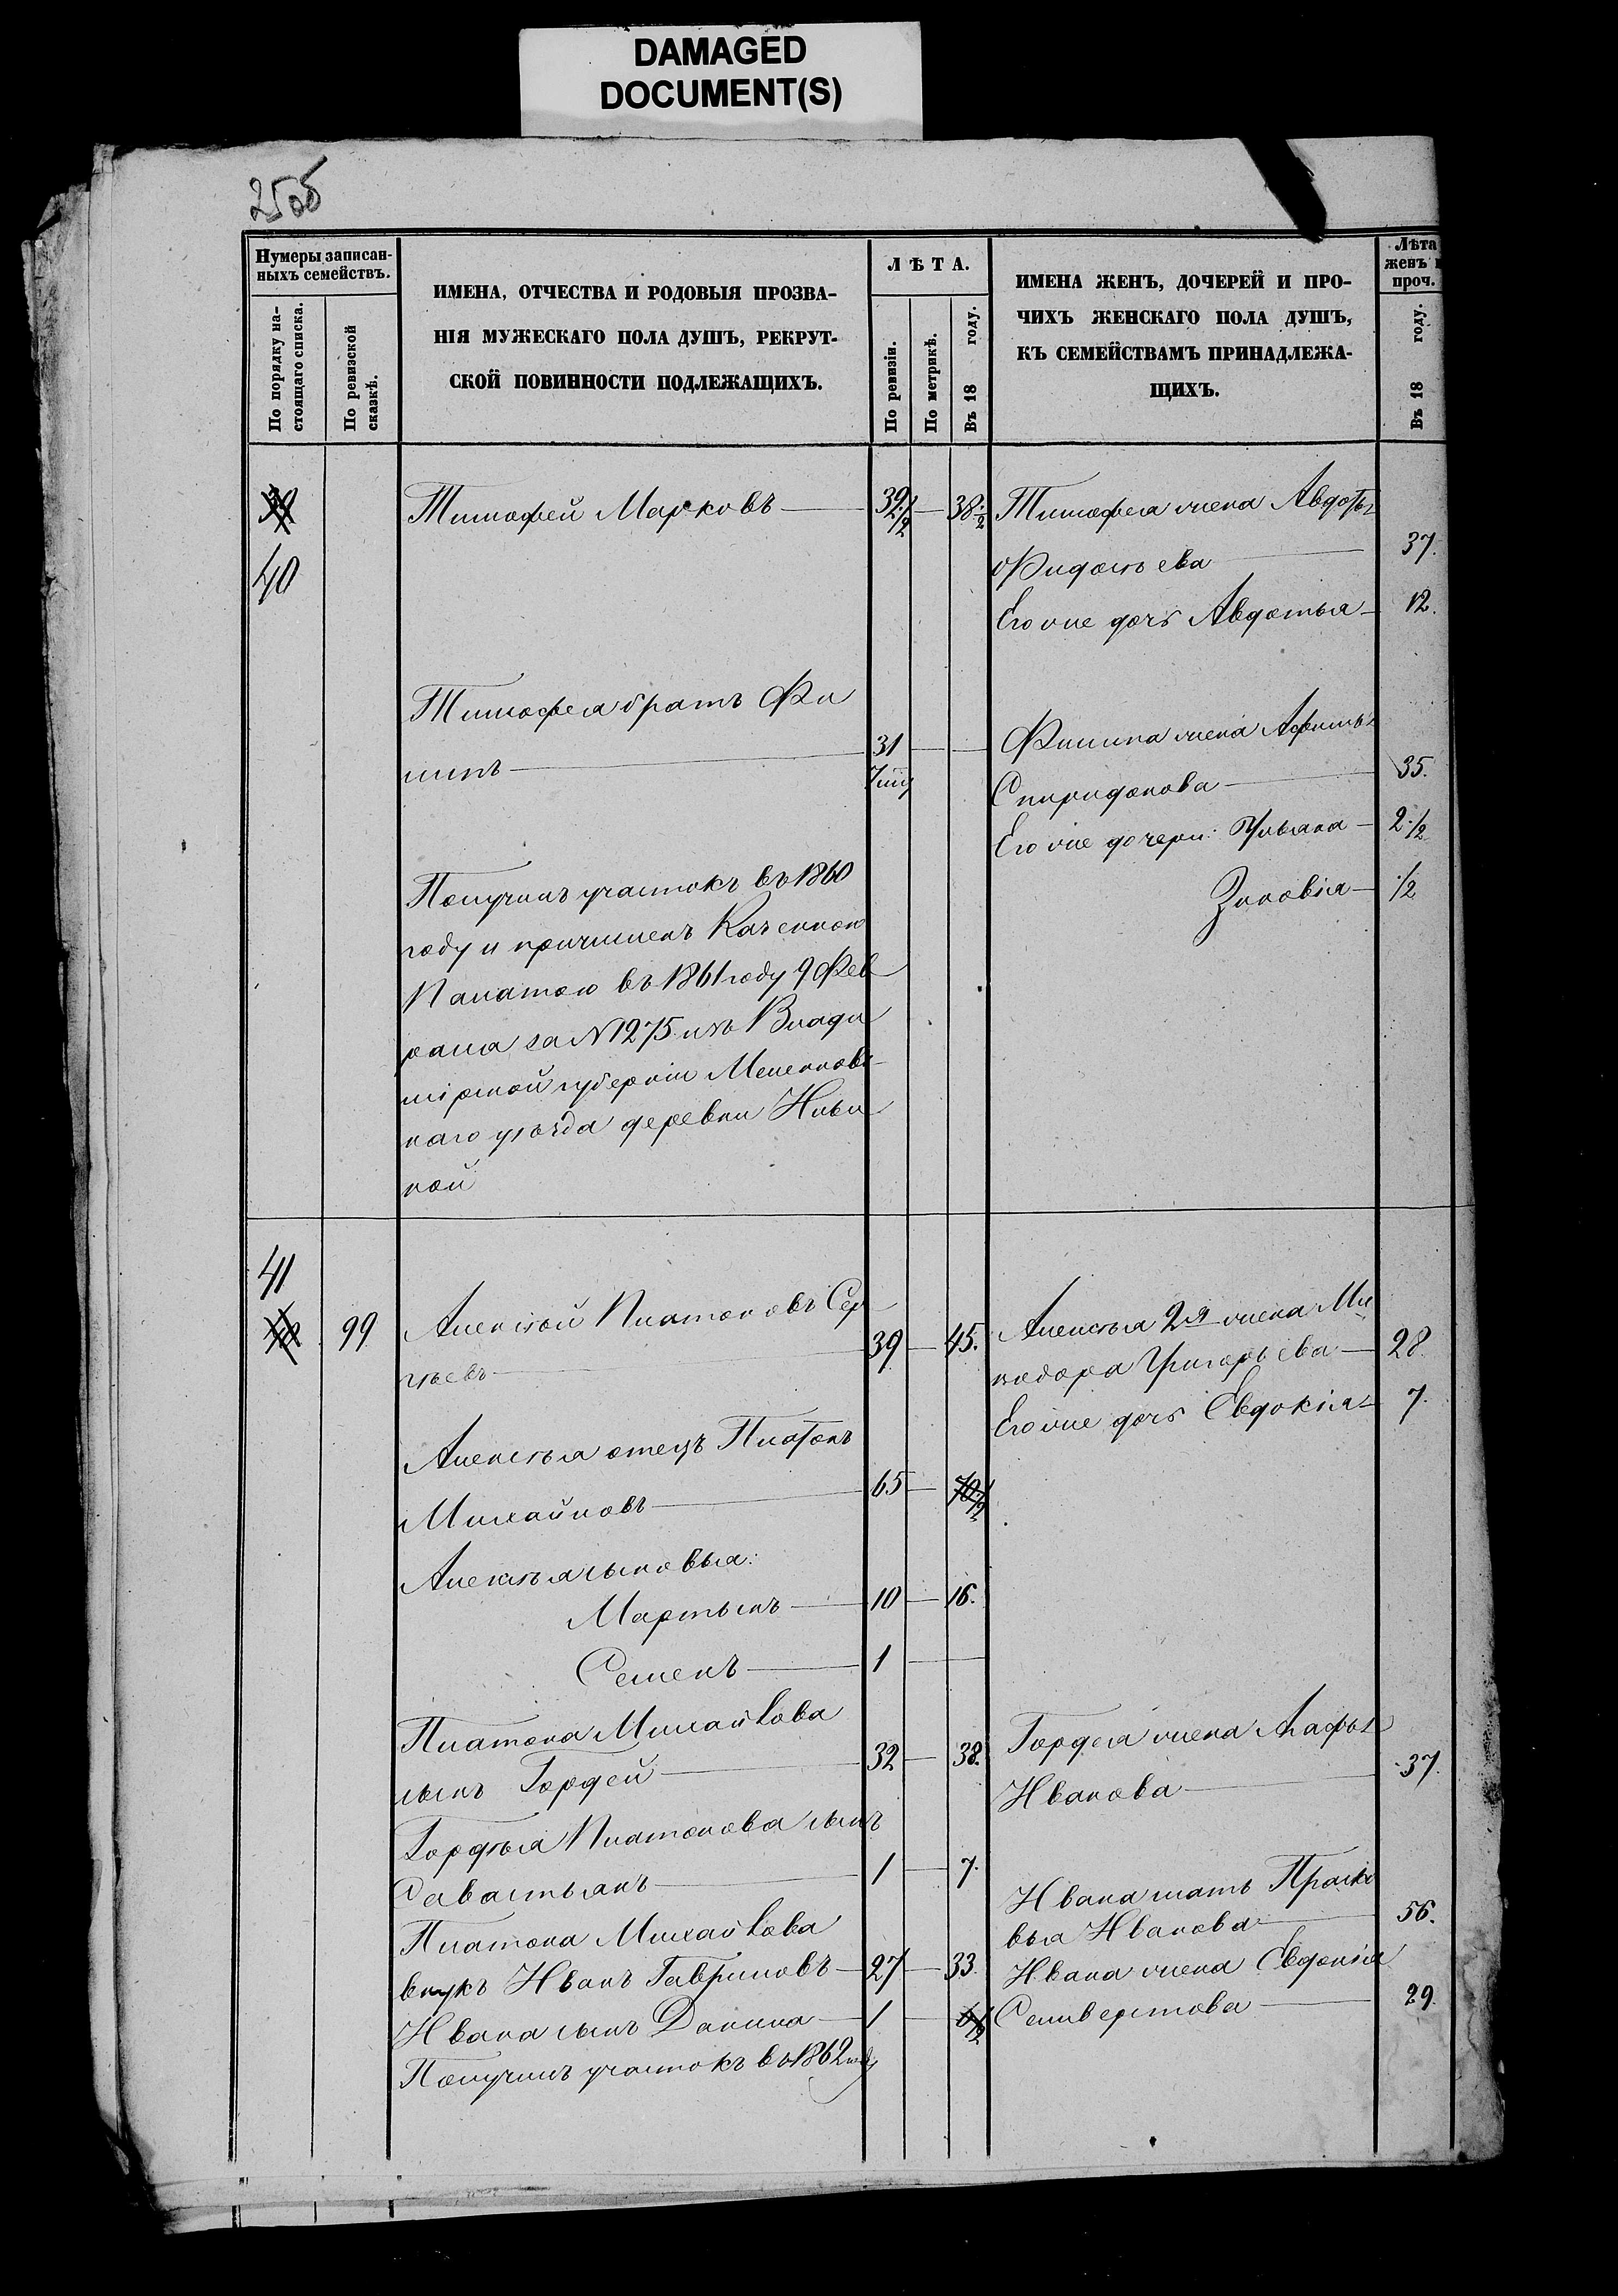 DAMAGED
DOCUMENT(S)
25об
Нумеры записан-
ныхъ семействъ.
По порядку на-
стоящаго списка.
По ревизской
сказкѣ.
ИМЕНА, ОТЧЕСТВА И РОДОВЫЯ ПРОЗВА-
НІЯ МУЖЕСКАГО ПОЛА ДУШЪ, РЕКРУТ-
СКОЙ ПОВИННОСТИ ПОДЛЕЖАЩИХЪ.
ЛѢТА.
По ревизіи.
По метрикѣ.
Въ 18 году.
ИМЕНА ЖЕНЪ, ДОЧЕРЕЙ И ПРО-
ЧИХЪ ЖЕНСКАГО ПОЛА ДУШЪ,
КЪ СЕМЕЙСТВАМЪ ПРИНАДЛЕЖА-
ЩИХЪ.
Лѣта
женъ и
проч.
Въ 18 году.
39
40
Тимофей Марковъ 32 1/2 38 1/2
Тимофея жена Авдотья
Фидотьева 37.
Его же дочь Авдотья 12.
Тимофея братъ Фи
липъ 31
Филипа жена Афимья
Спиридонова 35.
Его же дочери: Ульяна 2 1/2
Зиновія 1/2
Получилъ участокъ въ 1860
году и причисленъ Казенною
Палатою въ 1861 году 9 Фев
раля за N 1275 изъ Влади
мірской губерніи Меленковс
каго уѣзда деревни Ильи
ной
41
40 99
Алексѣй Платоновъ Сер
гѣевъ 39 45.
Алексѣя 2я жена Ми
нодора Григорьева 28
Его же дочь Евдокія 7.
Алексѣя отецъ Платонъ
Михайловъ 65 70 1/2
Алексѣя сыновья:
Мартынъ 10 16.
Семенъ 1
Платона Михайлова
сынъ Гордей 32 38.
Гордея жена Агафья
Иванова 37.
Гордѣя Платонова сынъ
Савастьянъ 1 7.
Ивана мать Праско
вья Иванова 56.
Платона Михайлова
внукъ Иванъ Гавриловъ 27 33.
Ивана жена Евдокія
Селиверстова 29.
Ивана сынъ Данила 1 6 1/2
Получилъ участокъ въ 1862 году